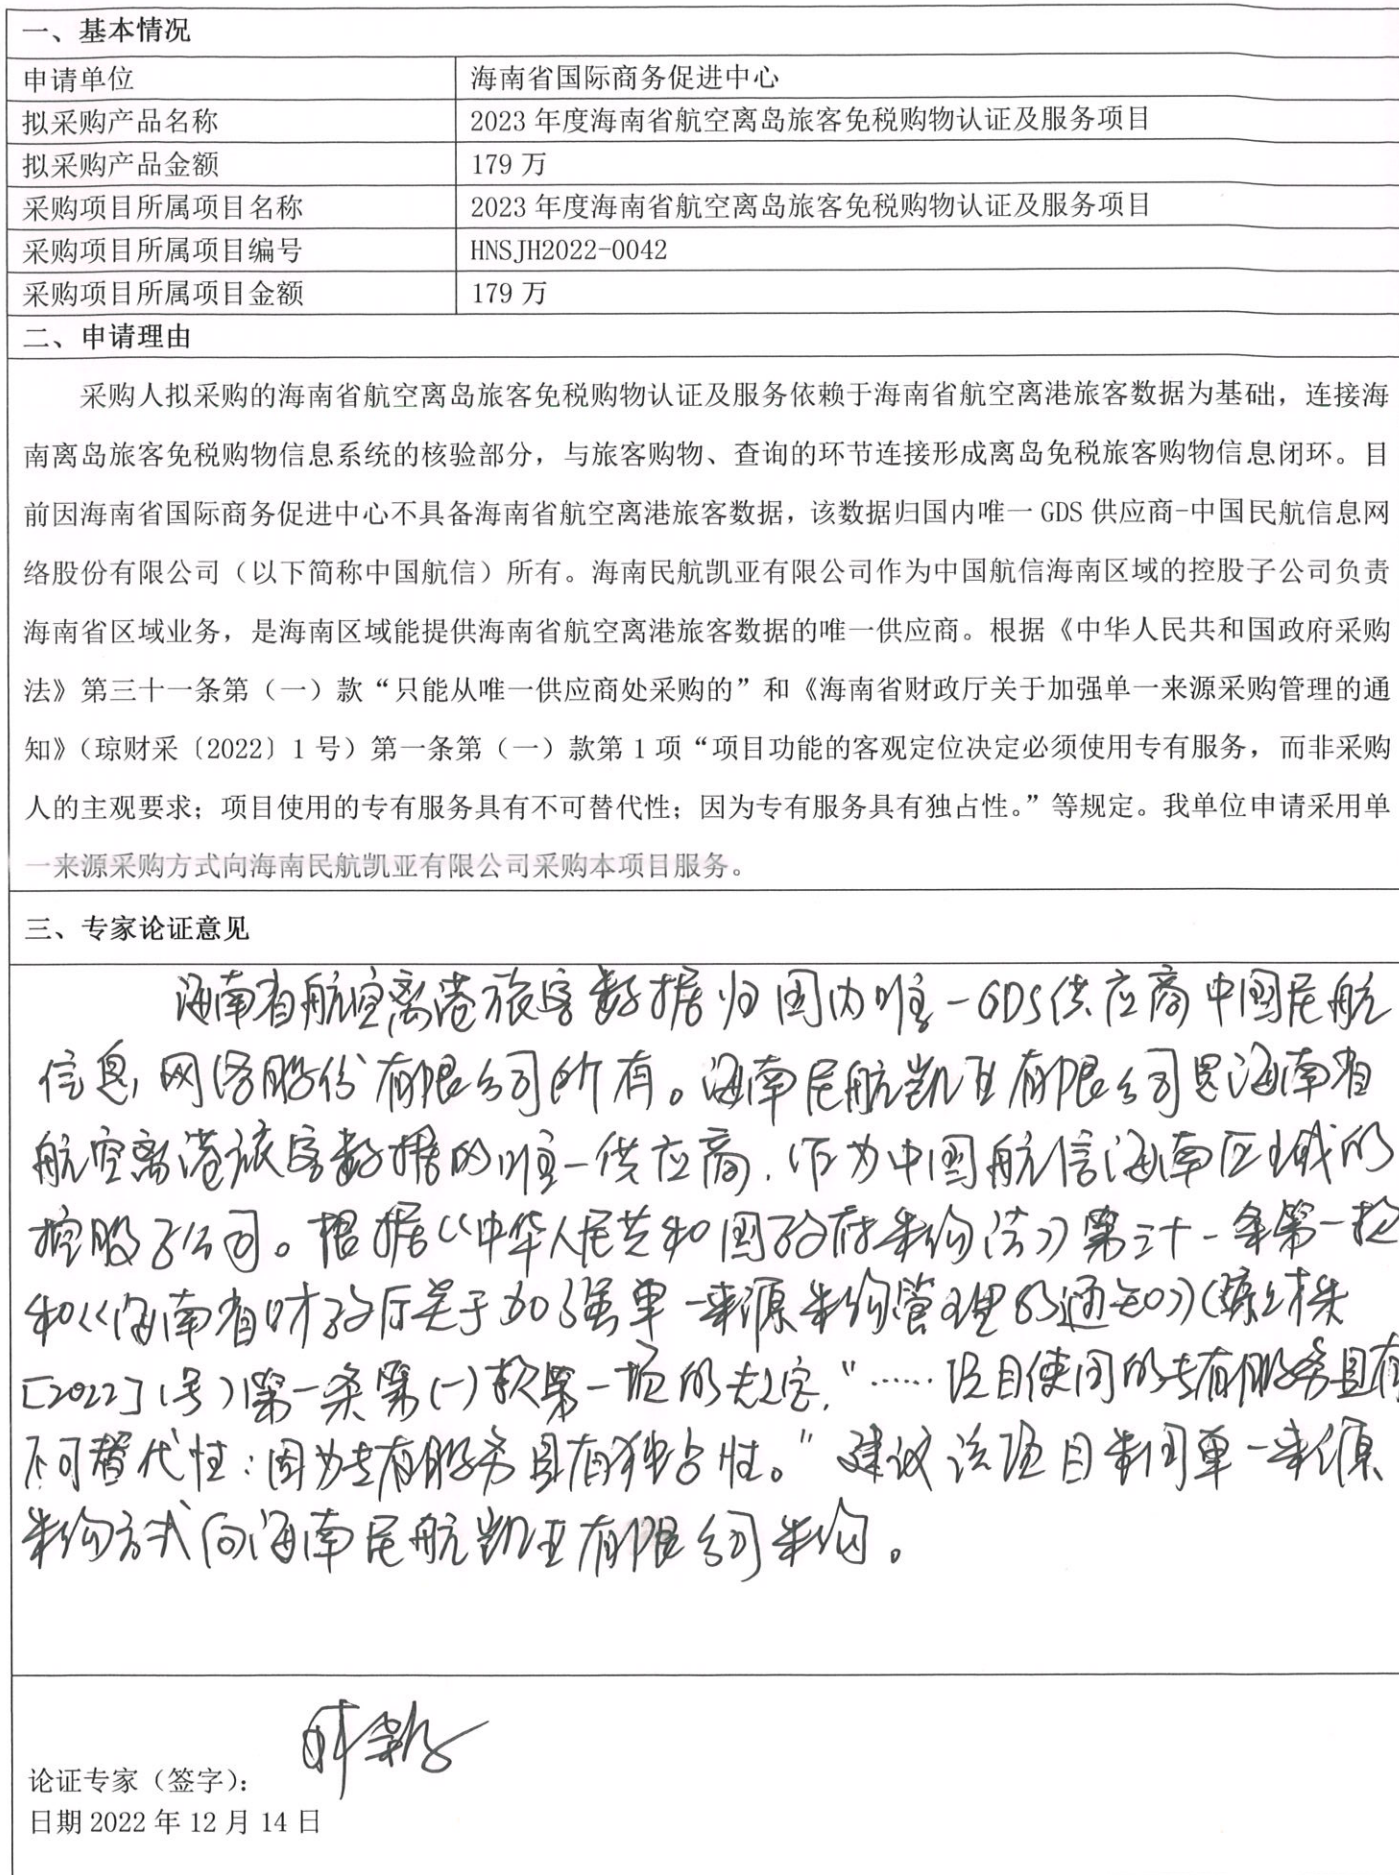 一、基本情况
申请单位 海南省国际商务促进中心
拟采购产品名称 2023 年度海南省航空离岛旅客免税购物认证及服务项目
拟采购产品金额 179 万
采购项目所属项目名称 2023 年度海南省航空离岛旅客免税购物认证及服务项目
采购项目所属项目编号 HNSJH2022-0042
采购项目所属项目金额 179 万
二、申请理由
采购人拟采购的海南省航空离岛旅客免税购物认证及服务依赖于海南省航空离港旅客数据为基础，连接海
南离岛旅客免税购物信息系统的核验部分，与旅客购物、查询的环节连接形成离岛免税旅客购物信息闭环。目
前因海南省国际商务促进中心不具备海南省航空离港旅客数据，该数据归国内唯一 GDS 供应商-中国民航信息网
络股份有限公司（以下简称中国航信）所有。海南民航凯亚有限公司作为中国航信海南区域的控股子公司负责
海南省区域业务，是海南区域能提供海南省航空离港旅客数据的唯一供应商。根据《中华人民共和国政府采购
法》第三十一条第（一）款“只能从唯一供应商处采购的”和《海南省财政厅关于加强单一来源采购管理的通
知》（琼财采〔2022〕1 号）第一条第（一）款第 1 项“项目功能的客观定位决定必须使用专有服务，而非采购
人的主观要求；项目使用的专有服务具有不可替代性；因为专有服务具有独占性。”等规定。我单位申请采用单
一来源采购方式向海南民航凯亚有限公司采购本项目服务。
三、专家论证意见
海南省航空离港旅客数据归国内唯一GDS供应商中国民航
信息网络股份有限公司所有。海南民航凯亚有限公司是海南省
航空离港旅客数据的唯一供应商，作为中国航信海南区域的
控股子公司。根据《中华人民共和国政府采购法》第三十一条第一款
和《海南省财政厅关于加强单一来源采购管理的通知》（琼财采
[2022]1号）第一条第(一)款第一项的规定，“……项目使用的专有服务具有
不可替代性；因为专有服务具有独占性。”建议该项目采用单一来源
采购方式向海南民航凯亚有限公司采购。
论证专家（签字）：
日期 2022 年 12 月 14 日